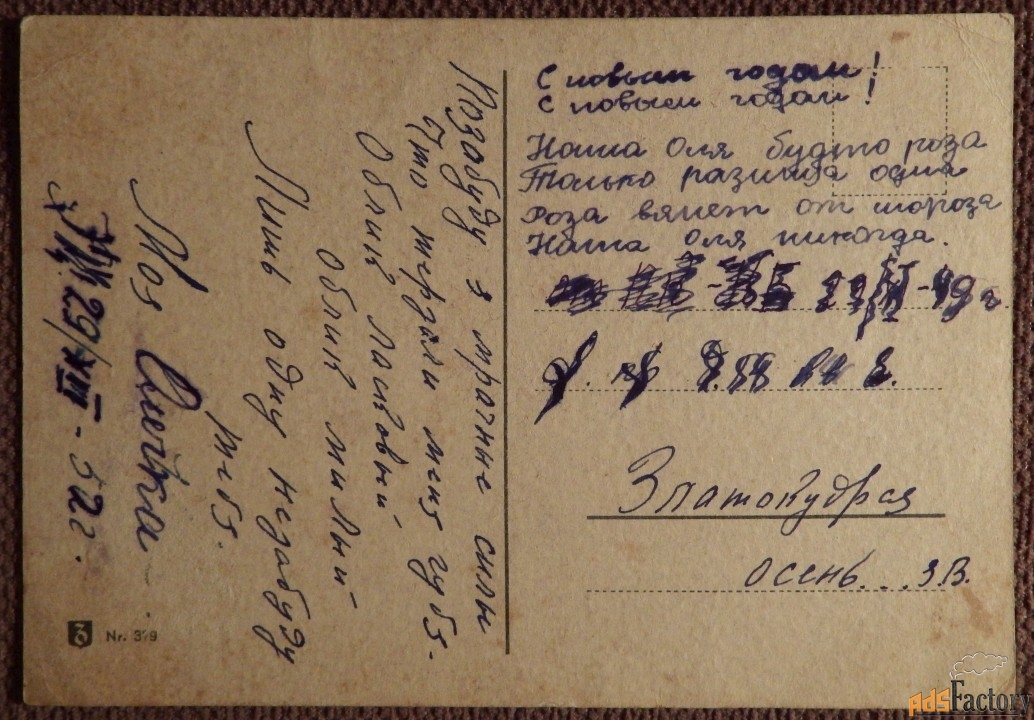 С новым годом!
С новым годом!
Наша Оля будто роза
Только разница одна
Роза вянет от мороза
Наша Оля никогда.
Златокудрая
осень... З.В.
Позабуду я мрачные силы
Что терзали меня губя.
Облик ласковый
Облик милый
Лишь одну незабуду
тебя.
Моя
29/XII - 52г.
Nr. 379
AdsFactory